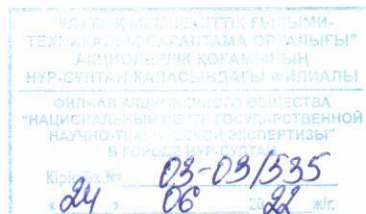 МЕМЛЕКЕТТІК ҒЫЛЫМИ-
ТЕХНИКАЛЫҚ САРАПТАМА ОРТАЛЫҒЫ"
АКЦИОНЕРЛІК ҚОҒАМЫНЫҢ
НҰР-СҰЛТАН ҚАЛАСЫНДАҒЫ ФИЛИАЛЫ
ФИЛИАЛ АКЦИОНЕРНОГО ОБЩЕСТВА
"НАЦИОНАЛЬНЫЙ ЦЕНТР ГОСУДАРСТВЕННОЙ
НАУЧНО-ТЕХНИЧЕСКОЙ ЭКСПЕРТИЗЫ"
В ГОРОДЕ НУР-СУЛТАН
№ 03-03/535
« 24 » 06 2022 ж/г.